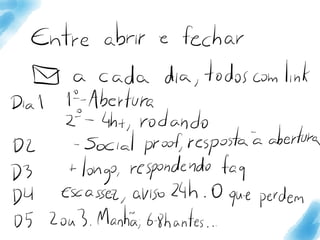 Entre abrir e fechar
a cada dia, todos com link
Dia 1 1º - Abertura
2º - 4h+, rodando
D2 - Social proof, resposta à abertura
D3 + longo, respondendo faq
D4 escassez, aviso 24h. O que perdem
D5 2 ou 3. Manhã, 6-8h antes...